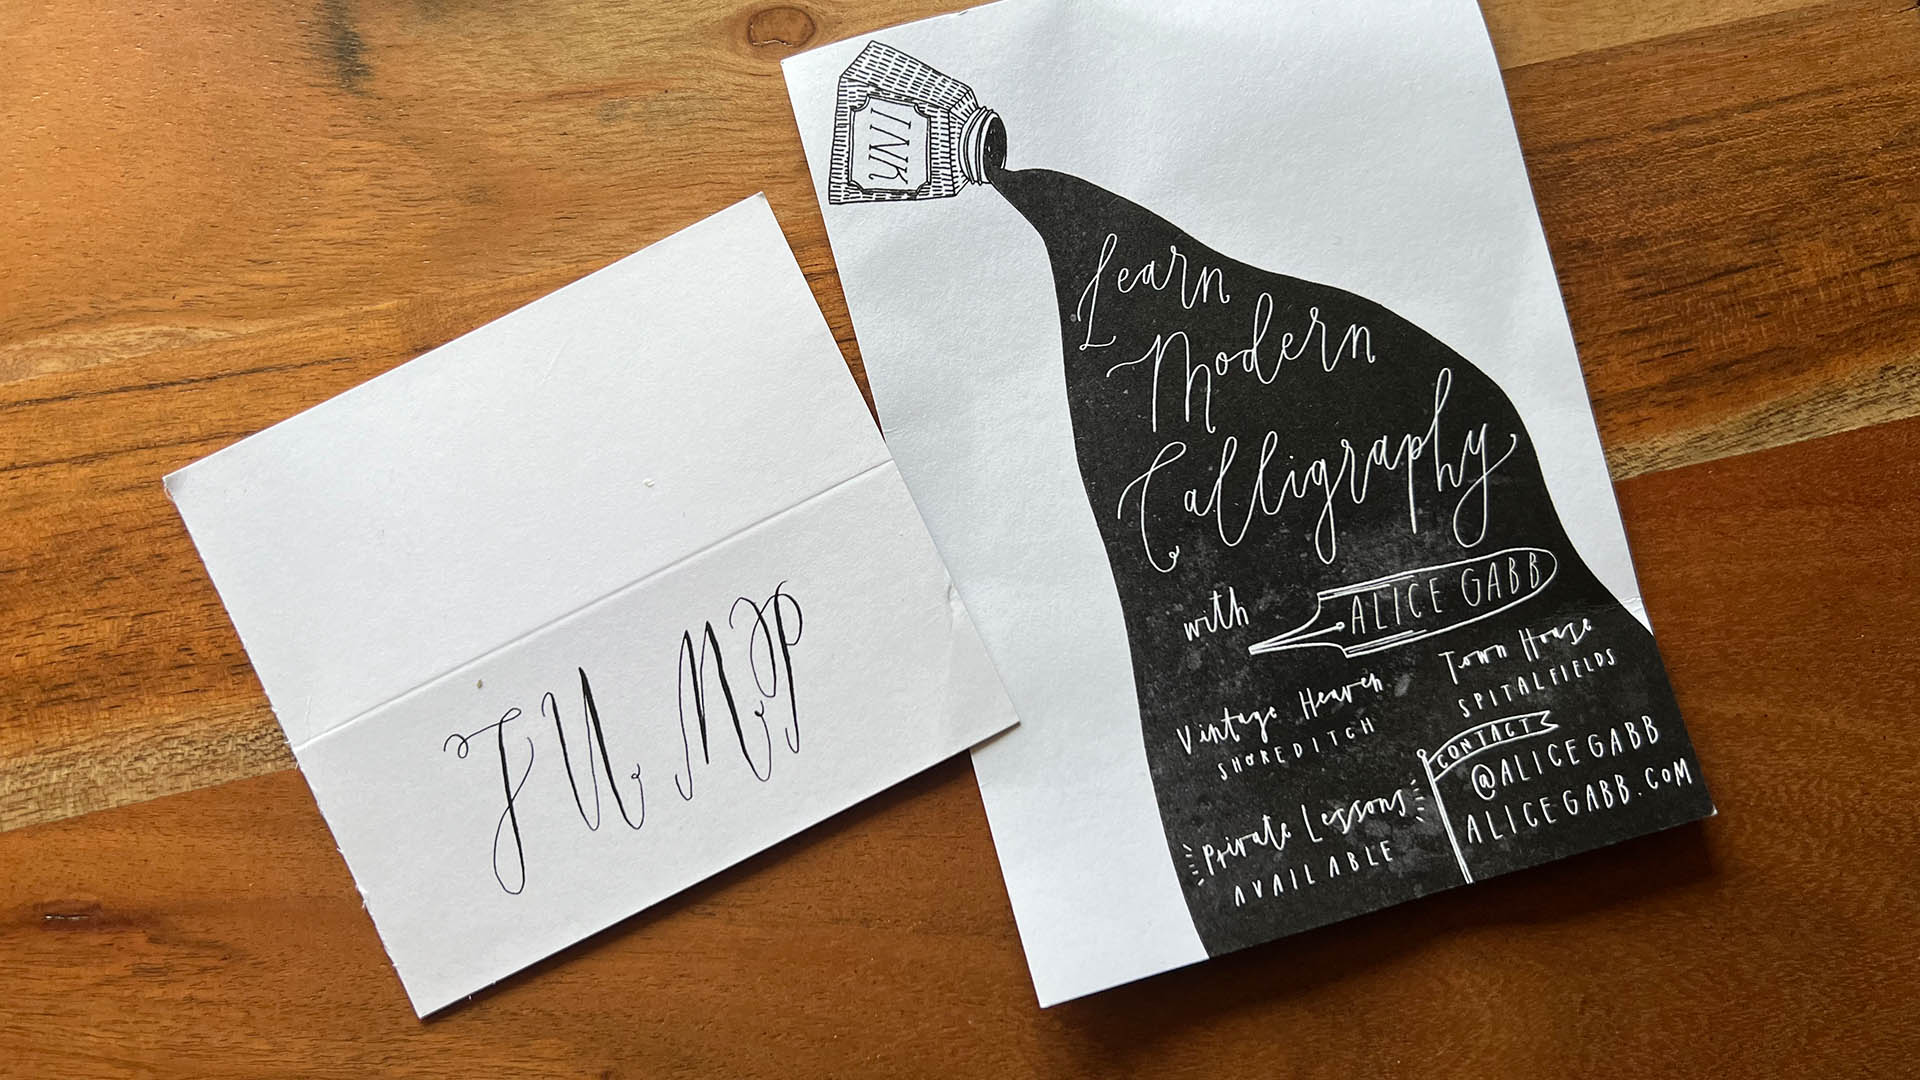 INK
Learn
Modern
Calligraphy
with ALICE GABB
Vintage Heaven
SHOREDITCH
Town House
SPITALFIELDS
Private Lessons
AVAILABLE
CONTACT
@ALICEGABB
ALICEGABB.COM